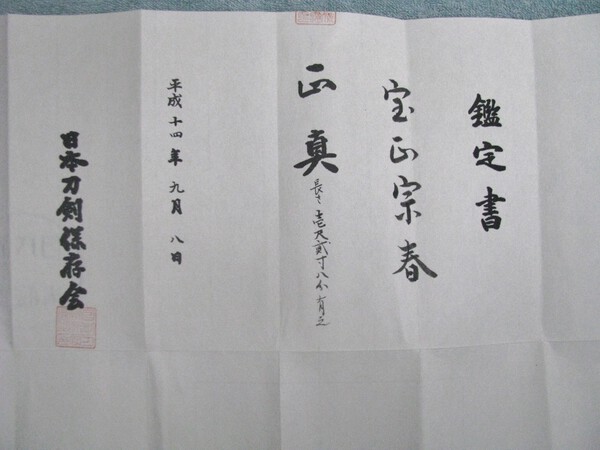 鑑定書
宝正宗春
正真 長さ壱尺貮寸八分有之
平成十四年九月八日
日本刀剣保存会